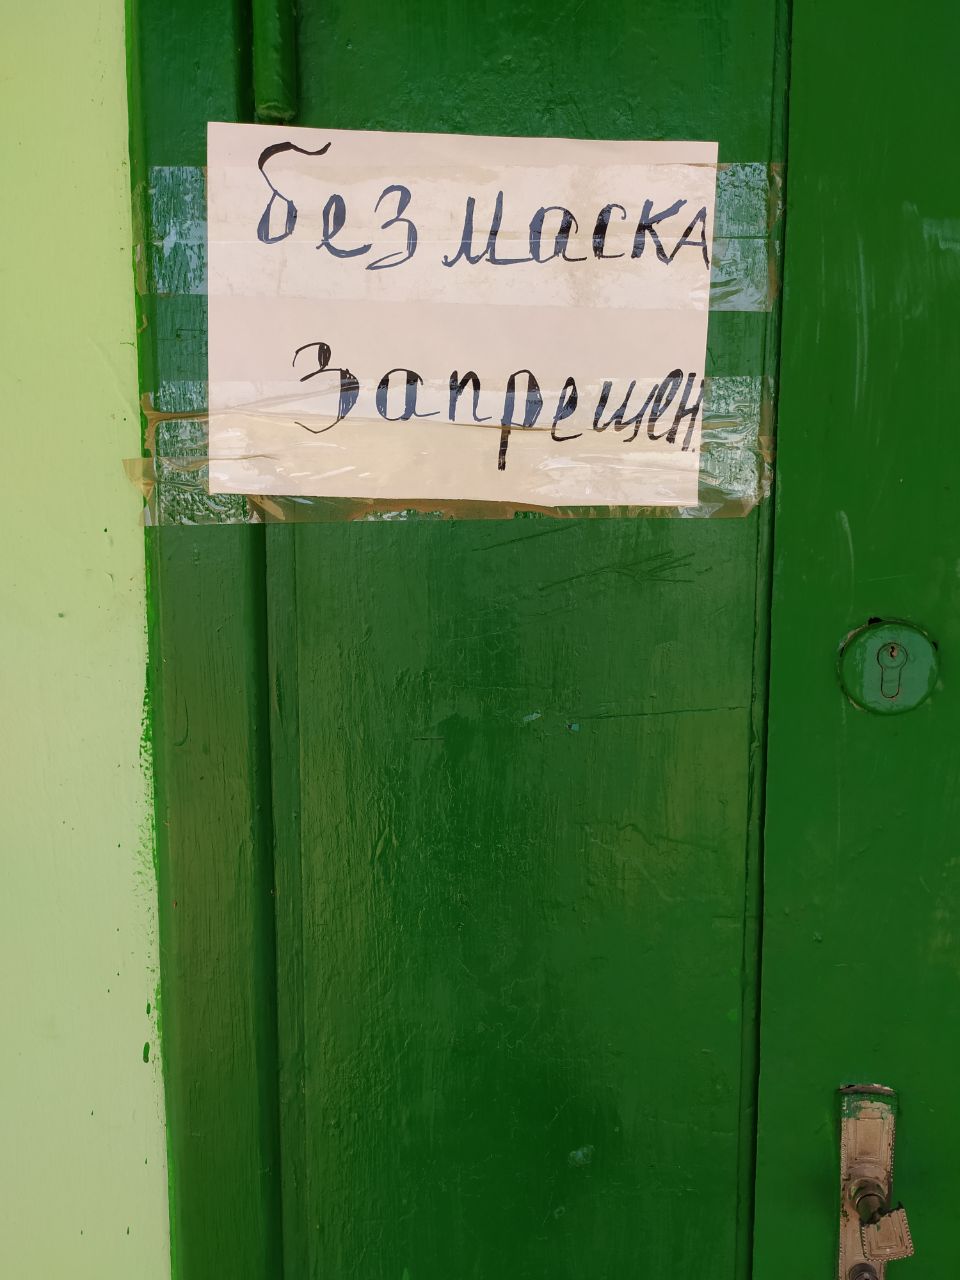 без маска
запрещен.